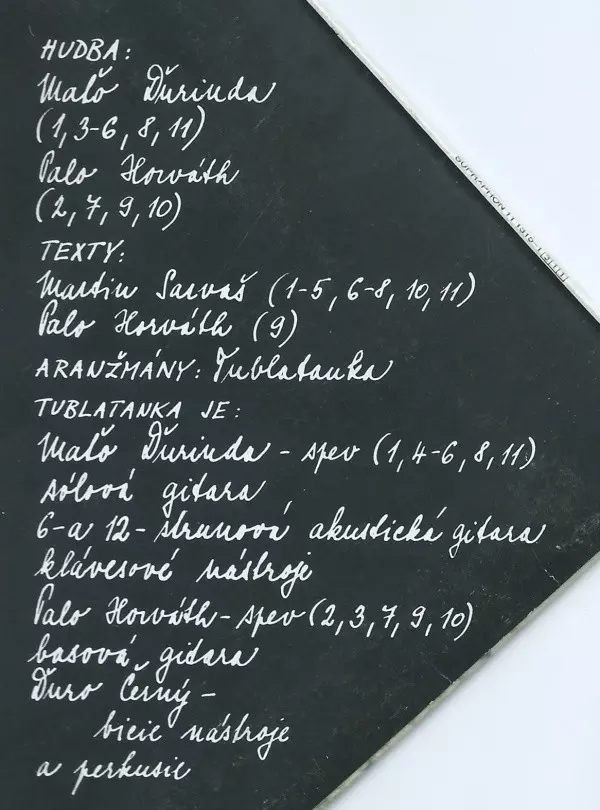 HUDBA:
Maťo Ďurinda
(1, 3-6, 8, 11)
Palo Horváth
(2, 7, 9, 10)
TEXTY:
Martin Sarvaš (1-5, 6-8, 10, 11)
Palo Horváth (9)
ARANŽMÁNY: Tublatanka
TUBLATANKA JE:
Maťo Ďurinda - spev (1, 4-6, 8, 11)
sólová gitara
6-a 12- strunová akustická gitara
klávesové nástroje
Palo Horváth - spev (2, 3, 7, 9, 10)
basová gitara
Ďuro Černý -
bicie nástroje
a perkusie
SUPRAPHON